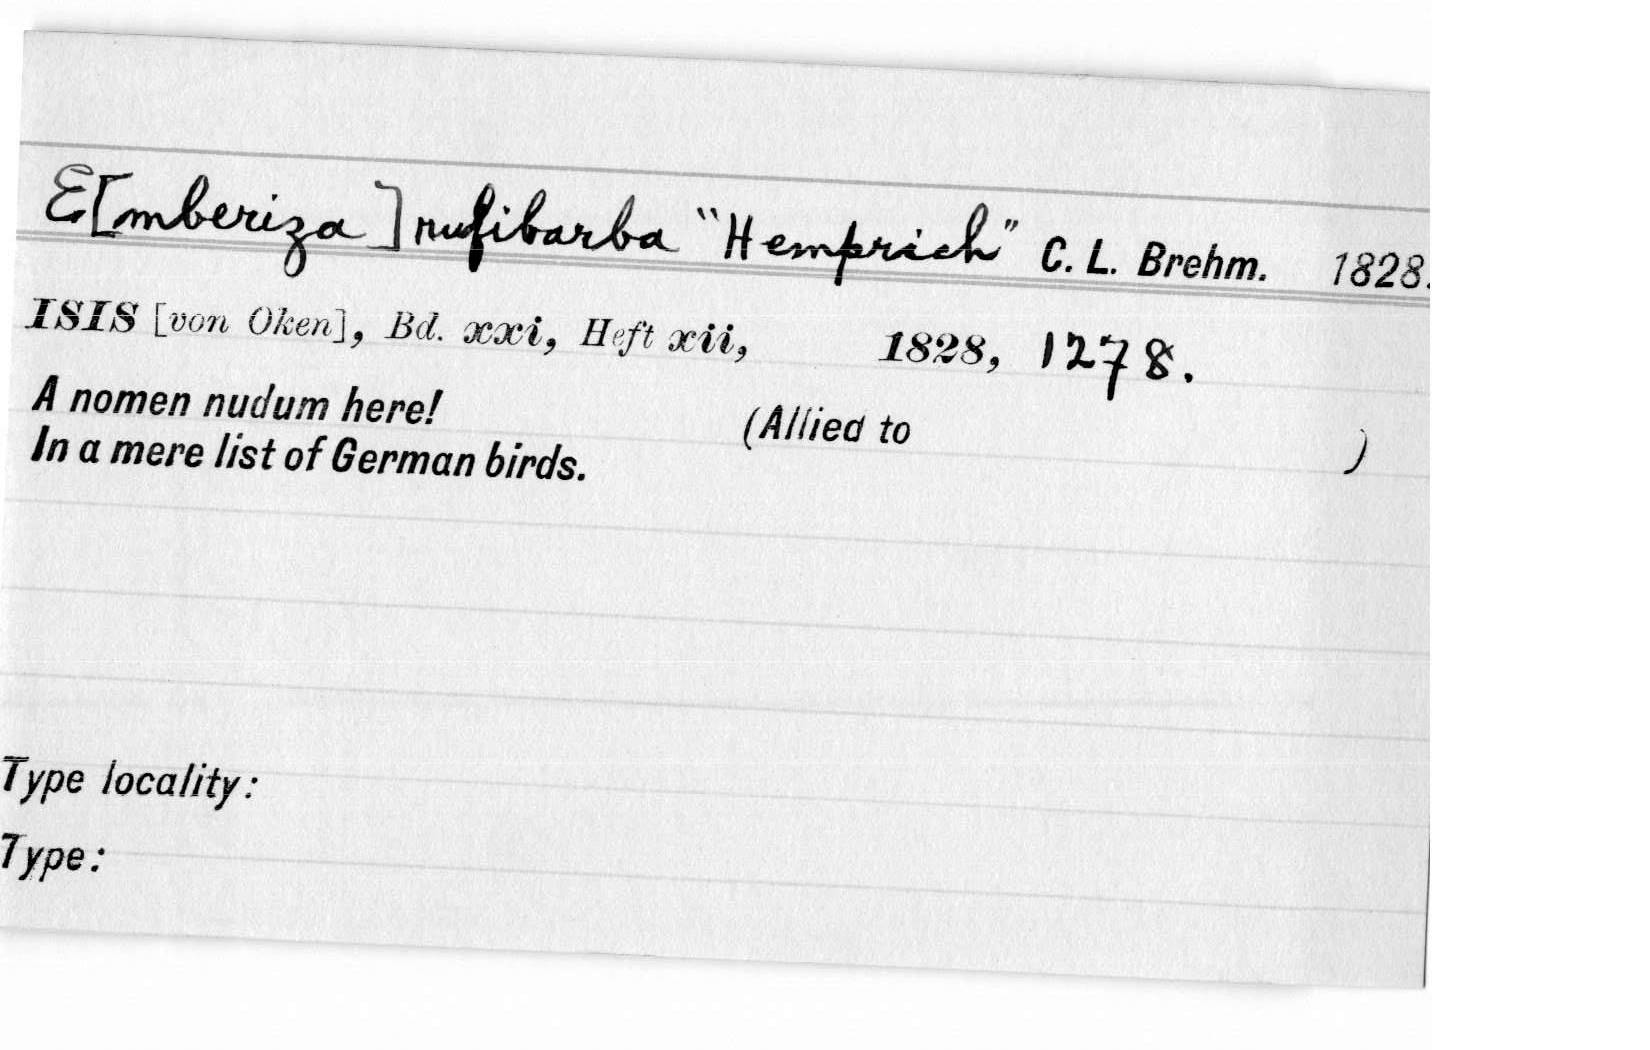 E[mberiza] rufibarba "Hemprich" C. L. Brehm. 1828.
ISIS [von Oken], Bd. xxi, Heft xii, 1828, 1278.
A nomen nudum here! (Allied to )
In a mere list of German birds.
Type locality:
Type: